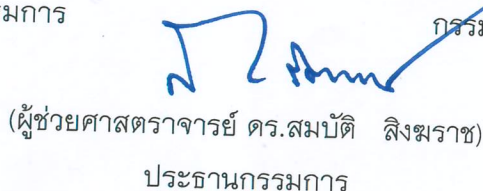 รมการ กรรม
(ผู้ช่วยศาสตราจารย์ ดร.สมบัติ สิงฆราช)
ประธานกรรมการ